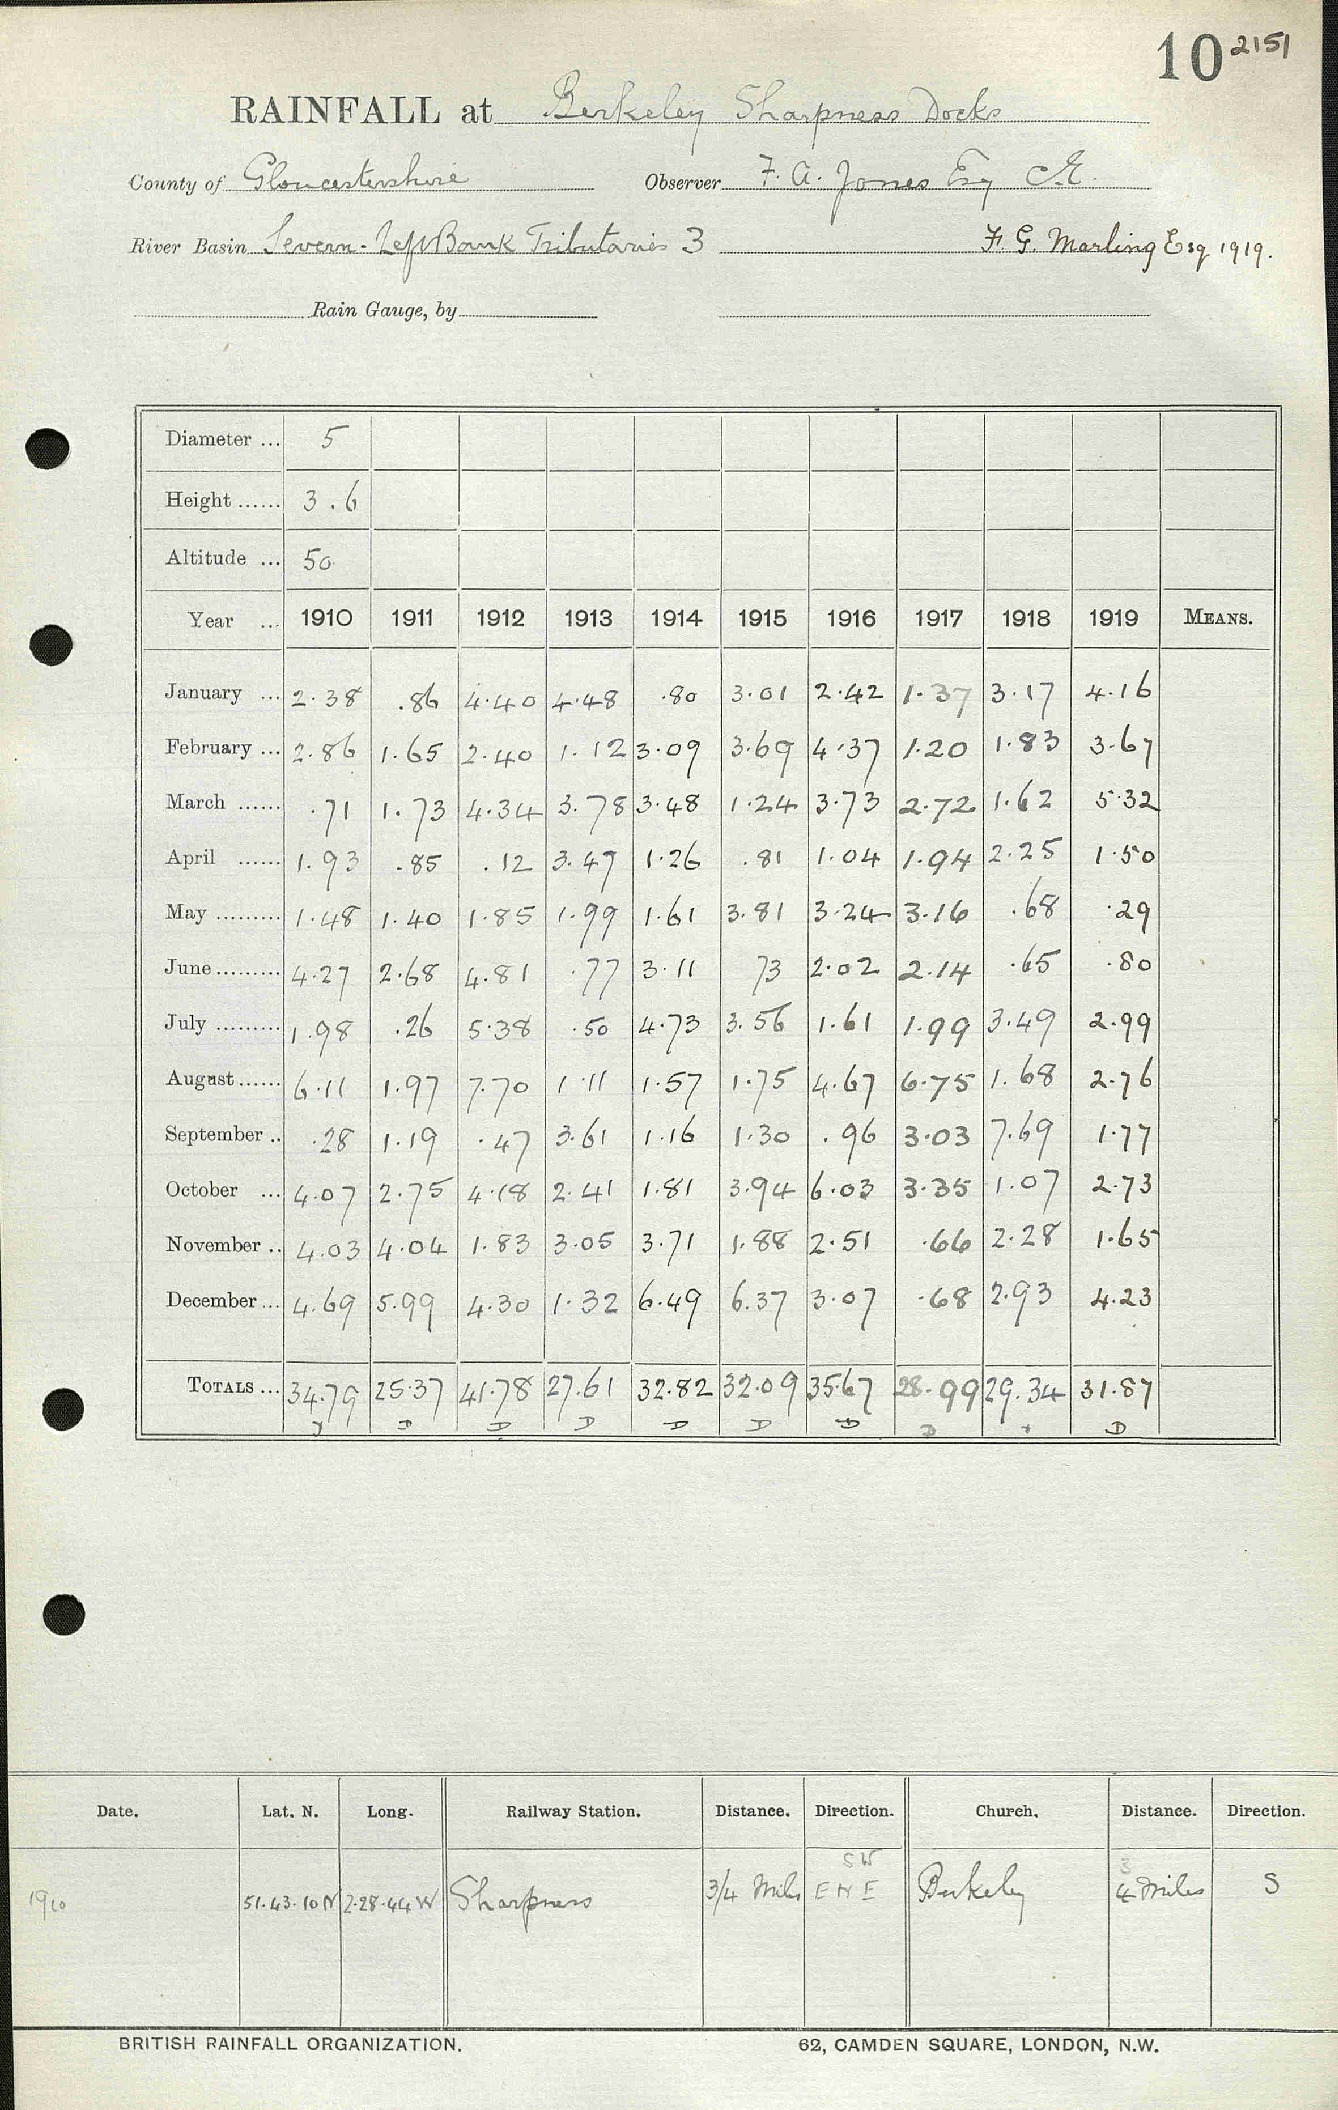 10 2151
RAINFALL at Berkeley Sharpness Docks
County of Gloucestershire Observer F. A. Jones Esq C.E.
River Basin Severn-Left Bank Tributaries 3 F. G. Marling Esq 1919.
Rain Gauge, by
Diameter ... 5
Height ...... 3.6
Altitude ... 50
Year ... 1910 1911 1912 1913 1914 1915 1916 1917 1918 1919 MEANS.
January ... 2.38 .86 4.40 4.48 .80 3.01 2.42 1.37 3.17 4.16
February ... 2.86 1.65 2.40 1.12 3.09 3.69 4.37 1.20 1.83 3.67
March ...... .71 1.73 4.34 3.78 3.48 1.24 3.73 2.72 1.62 5.32
April ...... 1.93 .85 .12 3.47 1.26 .81 1.04 1.94 2.25 1.50
May ......... 1.48 1.40 1.85 1.99 1.61 3.81 3.24 3.16 .68 .29
June ......... 4.27 2.68 4.81 .77 3.11 73 2.02 2.14 .65 .80
July ......... 1.98 .26 5.38 .50 4.73 3.56 1.61 1.99 3.49 2.99
August ...... 6.11 1.97 7.70 1.11 1.57 1.75 4.67 6.75 1.68 2.76
September .. .28 1.19 .47 3.61 1.16 1.30 .96 3.03 7.69 1.77
October ... 4.07 2.75 4.18 2.41 1.81 3.94 6.03 3.35 1.07 2.73
November .. 4.03 4.04 1.83 3.05 3.71 1.88 2.51 .66 2.28 1.65
December ... 4.69 5.99 4.30 1.32 6.49 6.37 3.07 .68 2.93 4.23
TOTALS ... 34.79 25.37 41.78 27.61 32.82 32.09 35.67 28.99 29.34 31.87
D D D D D D D D D
Date. Lat. N. Long. Railway Station. Distance. Direction. Church. Distance. Direction.
SW 3
1910 51.43.10N 2.28.44W Sharpness 3/4 Mile ENE Berkeley 4 miles S
BRITISH RAINFALL ORGANIZATION. 62, CAMDEN SQUARE, LONDON, N.W.